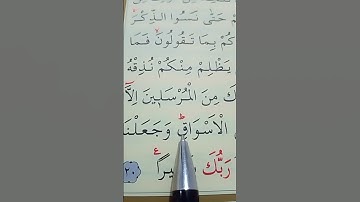 حَتّٰى نَسُوا الذِّكْرَۚ
كُمْ بِمَا تَقُولُونَۙ فَمَا
يَظْلِمْ مِنْكُمْ نُذِقْهُ
كَ مِنَ الْمُرْسَلِينَ اِلَّٓا
الْاَسْوَاقِۜ وَجَعَلْنَا
رَبُّكَ بَصِيراً ࣖ ﴿٢٠﴾